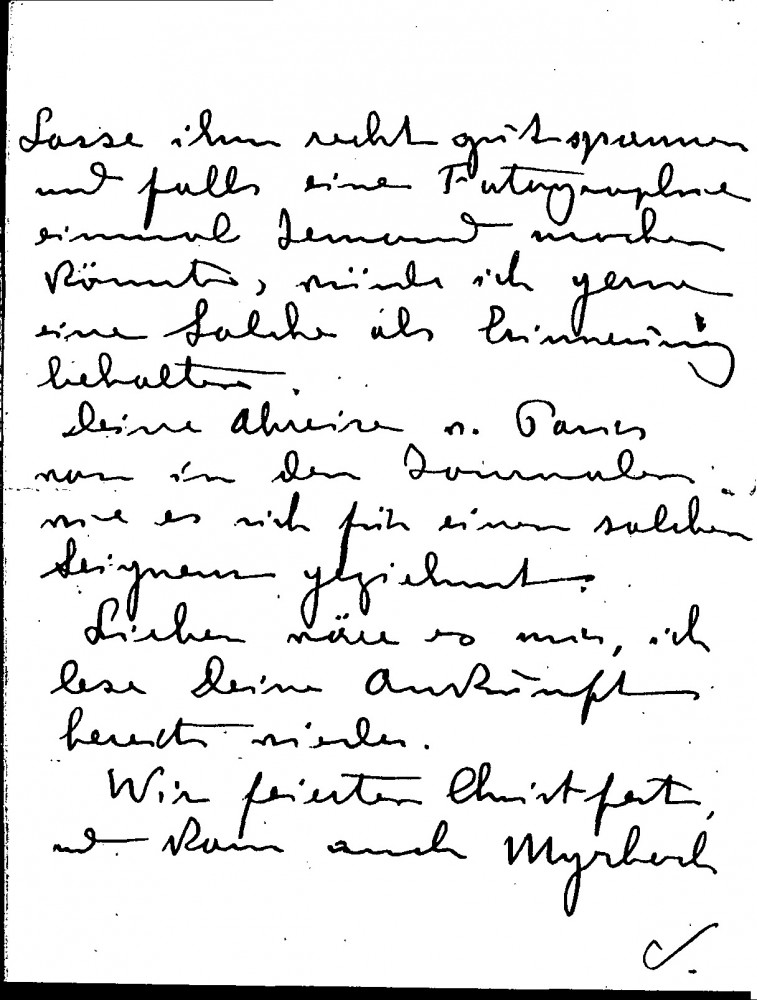 Lasse ihm recht gut spannen
und falls eine Fotographie
einmal Jemand machen
könnte, würde ich gerne
eine Solche als Erinnerung
behalten.
Deine Abreise v. Paris
war in den Journalen
wie es sich für einen solchen
Seigneur geziehmt.
Lieber wäre es mir, ich
lese Deine Ankunft
bereits wieder.
Wir feierten Christfest,
und kam auch Myrbach